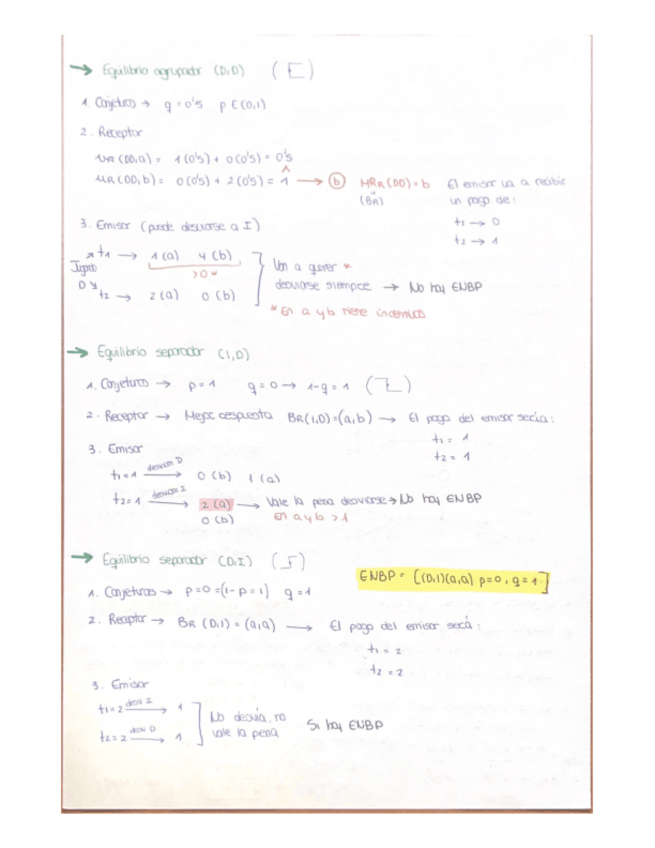 → Equilibrio agrupador (D,D)
1. Conjeturas → q = 0'5 p ∈ (0,1)
2. Receptor
UR (DD,a) = 1(0'5) + 0(0'5) = 0'5
UR (DD,b) = 0(0'5) + 2(0'5) = 1 → b MRR (DD) = b El emisor va a recibir
(BR) un pago de:
t1 → 0
t2 → 1
3. Emisor (puede desviarse a I)
t1 → 1(a) 4(b) Van a querer *
>0 *
D t2 → 2(a) 0(b) desviarse siempre → No hay ENBP
* En a y b tiene incentivos
→ Equilibrio separador (I,D)
1. Conjeturas → p = 1 q = 0 → 1-q = 1
2. Receptor → Mejor respuesta BR (I,D) = (a,b) → El pago del emisor sería:
t1 = 1
t2 = 1
3. Emisor
t1 = 1 desviar D → 0(b) 1(a)
t2 = 1 desviar I → 2(a) → Vale la pena desviarse → No hay ENBP
0(b) En a y b > 1
→ Equilibrio separador (D,I)
ENBP = [(D,I)(a,a) p=0, q=1]
1. Conjeturas → p = 0 = (1-p = 1) q = 1
2. Receptor → BR (D,I) = (a,a) → El pago del emisor será:
t1 = 2
t2 = 2
3. Emisor
t1 = 2 desv I → 1 No desvía, no
t2 = 2 desv D → 1 vale la pena Si hay ENBP